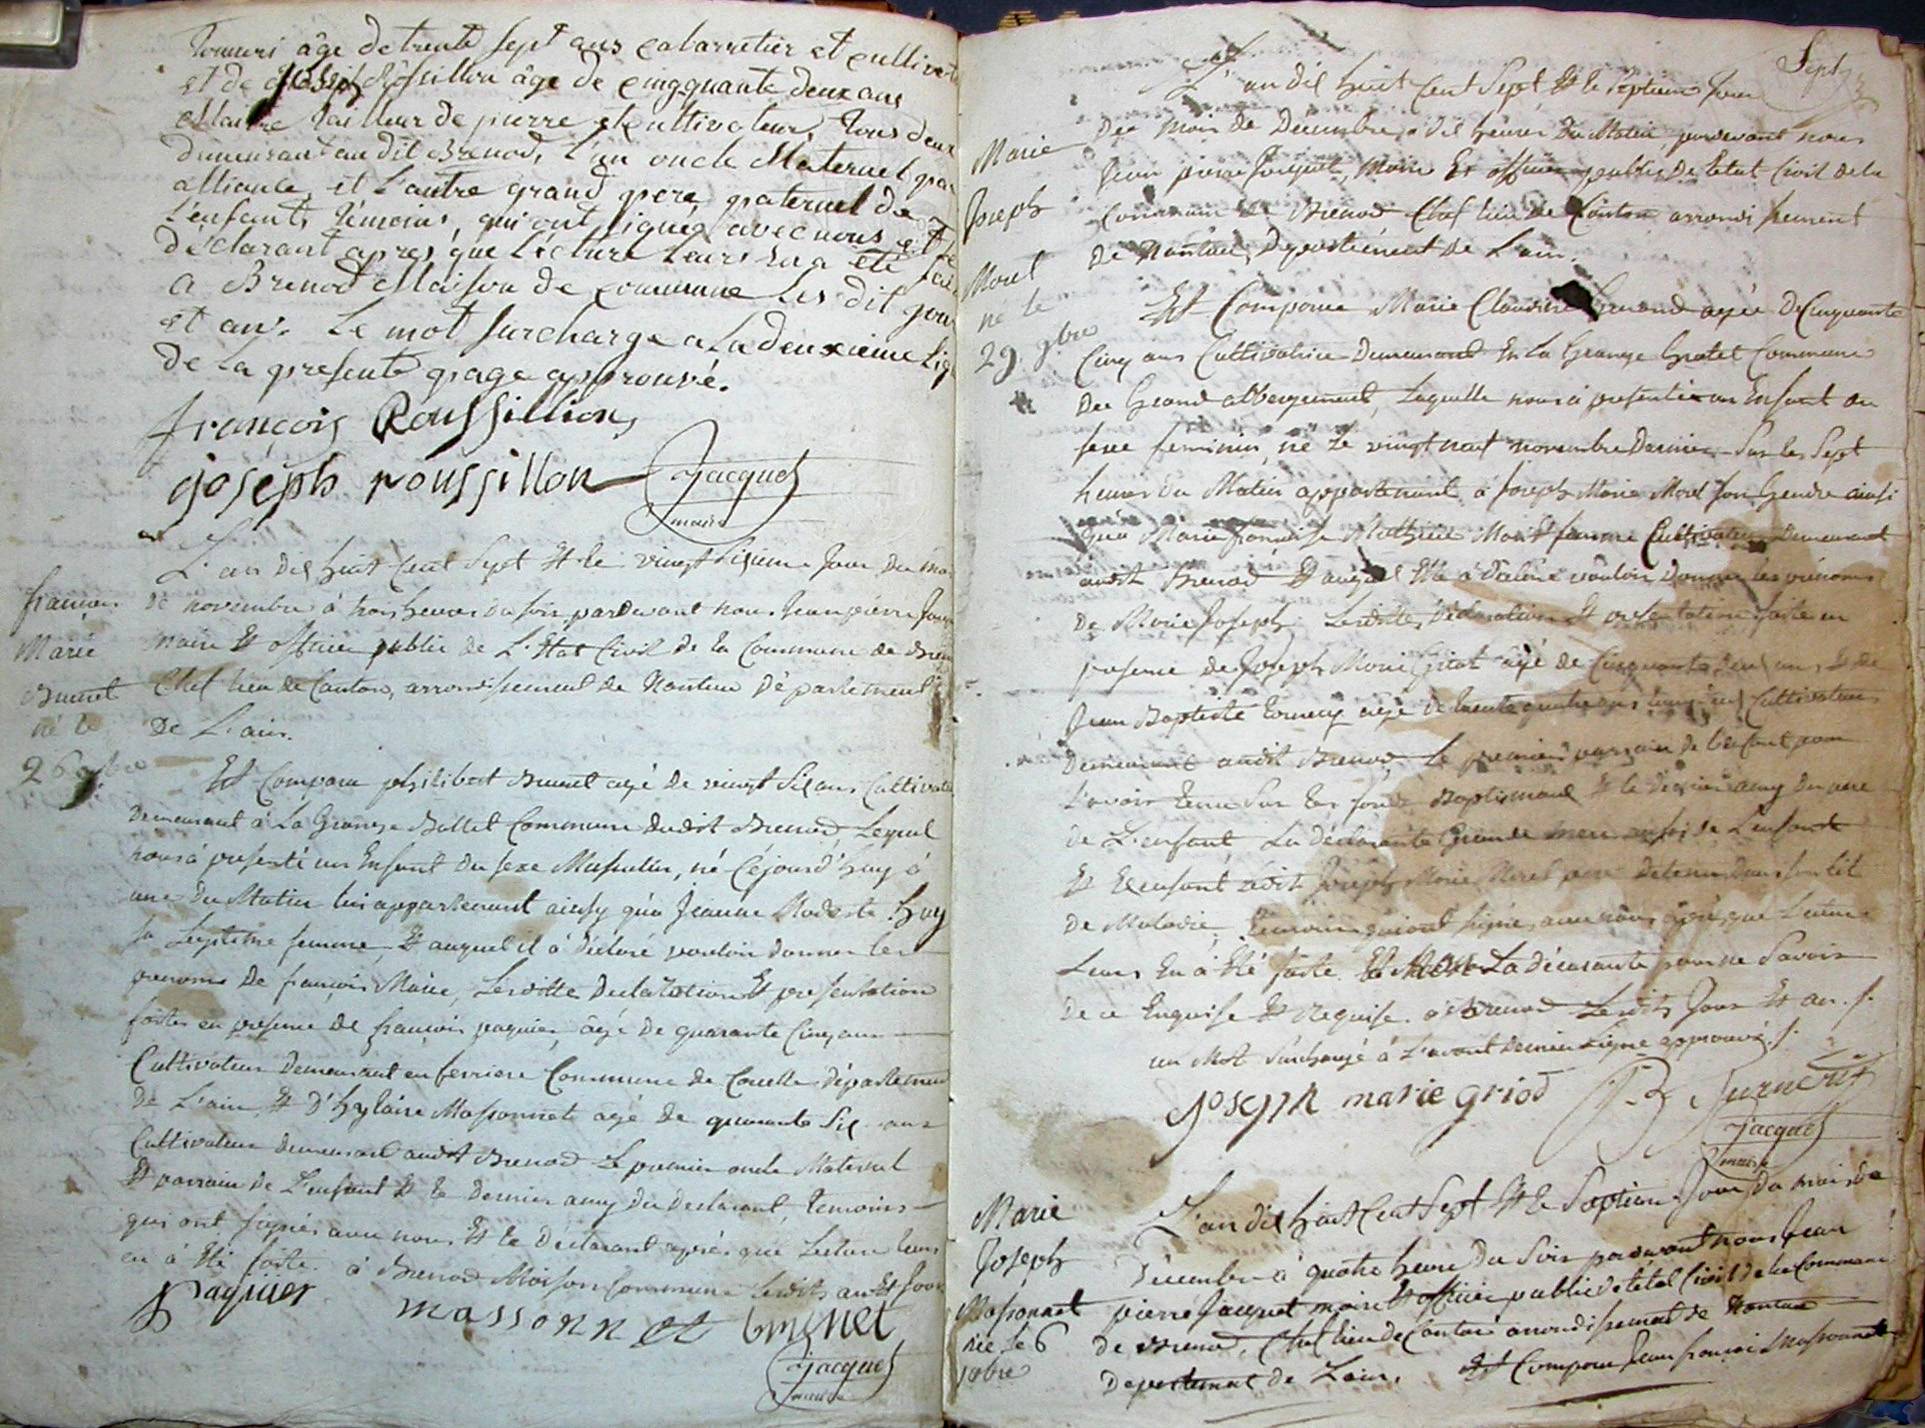 âge de trente sept ans cabarretier et
et de Joseph Rossillion âge de cinqquante deux ans
Maitre tailleur de pierre et cultivateur, tous deux
demeurant audit Brenod, l'un oncle Maternel par
alliance, et l'autre grand pere paternel de
l'enfant, témoins, qui ont signés avec nous et le
déclarant apres que lecture leurs en a été
a Brenod Maison de commune les dit jour
et an. Le mot surchargé a la deuxieme lig
de la presente page approuvé.
françois Roussillion
joseph roussillon Jacquet
maire
françois
Marie
Brunet
né le
26 9bre
L'an dix huit cent Sept Et le vingt sixieme Jour Du mois
de novembre à trois heures du soir, pardevant nous Jean pierre Jacq
Maire Et officier public de L'Etat Civil de la Commune de Bren
Chef lieu de Canton, arrondissement de Nantua Département
De L'ain.
Est Comparu philibert Brunet agé de vingt six ans Cultivat
Demeurant à La Grange Ballet Commune dudit Brenod Lequel
nous à présenté un Enfant du sexe Masculin, né Cejourd'huy à
une du Matin lui appartenant ainsy qu'a Jeanne Modeste Huy
sa Legitime femme, Et auquel il à déclaré vouloir donner les
prenoms de françois Marie, Lesdittes Declaration Et presentation
faites en presence de françois paquier, âgé de quarante Cinq ans
Cultivateur Demeurant en ferriere Commune de Corcelle Département
De L'ain Et D'hylaire Massonnet agé de quarante Six ans
Cultivateur demeurant audit Brenod Le premier oncle Maternel
Et parrain de L'enfant Et le dernier amy du Declarant, temoins
qui ont signés avec nous Et le Déclarant après que Lecture leurs
en à été faite. à Brenod Maison Commune lesdits an Et Jour
Paquier massonnet brunet
Jacquet
maire
Sept
Marie
Joseph
Morel
né le
29. 9bre
L'an dix huit Cent Sept Et le Septieme Jour
Du mois de Décembre à dix heures du Matin, pardevant nous
Jean pierre Jacquet, Maire Et officier public De L'etat Civil de la
Commune de Brenod Chef lieu de Canton arrondissement
De Nantua, Département de L'ain.
Est Comparue Marie Claudine agée De Cinquante
Cinq ans Cultivatrice Demeurant En La Grange Commune
Du Grand abbergement, Laquelle nous à presenté un Enfant du
sexe feminin, né Le vingt neuf novembre Dernier Sur les Sept
heures du Matin appartenant à Joseph Marie Morel son Gendre ainsi
qu'à Marie françoise femme Cultivateurs Demeurant
audit Brenod Et auquel Elle à Déclaré vouloir Donner les prénoms
De Marie Joseph. Lesdittes Déclaration Et presentation faite en
presence de Joseph Marie âgé de Cinquante deux ans Et de
Jean Baptiste agé de trente quatre ans Cultivateurs
Demeurant audit Brenod le premier parrain de l'enfant pour
L'avoir tenu Sur les fonds Baptismaux Et le dernier amy du pere
de L'enfant La déclarante Grande mere de L'enfant
Et ledit Joseph Marie Morel pere detenu dans son lit
De Maladie, temoins qui ont signés avec nous après que Lecture
Leurs En à été faite. La déclarante pour ne Savoir
De ce Enquise Et Requise. à Brenod Lesdits Jour Et an. /.
un Mot Surchargé à L'avant derniere Ligne approuvé. /.
Joseph marie griod
Jacquet
maire
Marie
Joseph
Massonnet
née le 6
Xbre
L'an dix huit Cent Sept Et le Septieme Jour Du mois de
Décembre à quatre heure Du Soir pardevant nous Jean
pierre Jacquet maire Et officier public de l'état Civil de la Commune
de Brenod, Chef lieu de Canton arrondissement de Nantua
Departement de L'ain. Est Comparu Jean françois Massonnet